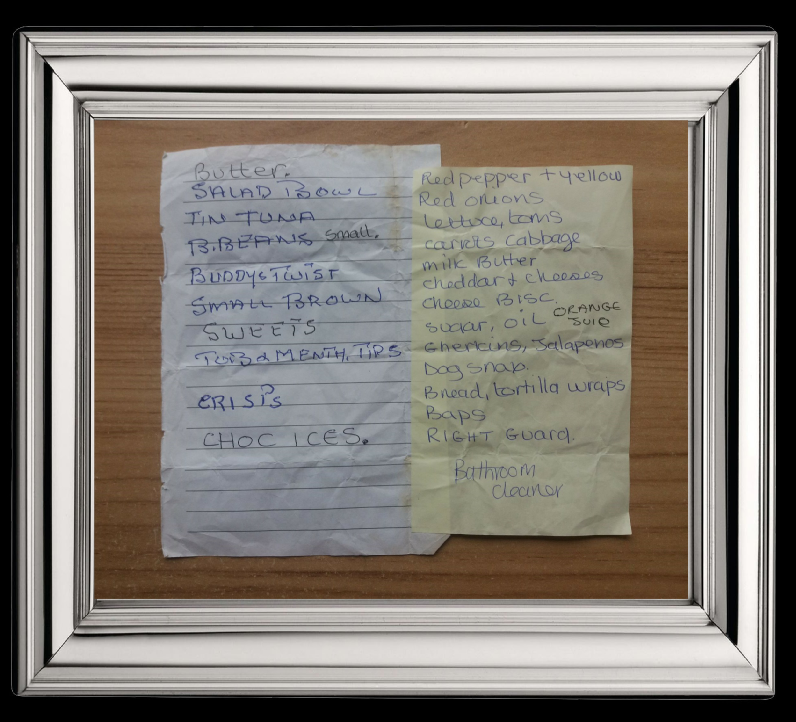 Butter.
SALAD BOWL
TIN TUNA
B.BEANS small.
BUDDYS TWIST
SMALL BROWN
SWEETS
TOB & MENTH. TIPS
CRISPS
CHOC ICES.
Red pepper + yellow
Red onions
lettuce, toms
carrots cabbage
milk Butter
cheddar + cheeses
cheese BISC.
sugar, oil ORANGE
JUIC
Gherkins, Jalapenos
Dog snap.
Bread, tortilla wraps
Baps
RIGHT Guard.
Bathroom
cleaner